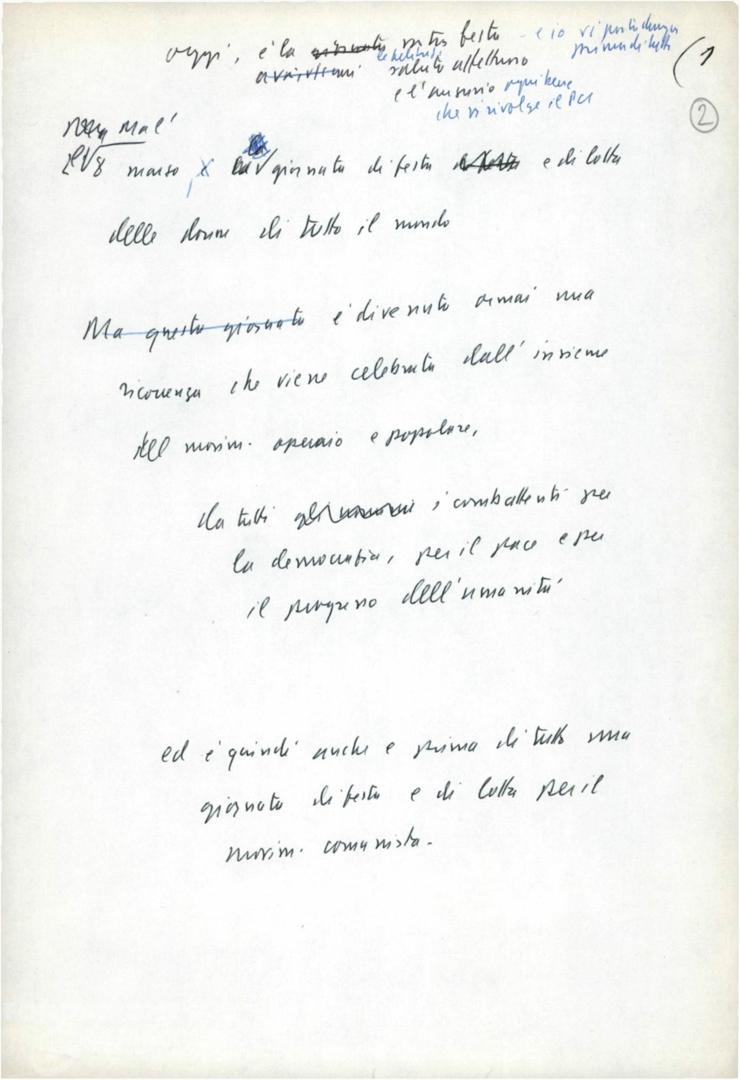 oggi, è la giornata vostra festa - e io vi porto dunque
prima di tutto
saluto affettuoso
e l'augurio ogni bene
che vi rivolge il PCI
1
2
Ma l'
8 marzo, la giornata di festa e di lotta
delle donne di tutto il mondo
Ma questa giornata è divenuta ormai una
ricorrenza che viene celebrata dall'insieme
del movim. operaio e popolare,
da tutti gli uomini i combattenti per
la democratia, per il pace e per
il progresso dell'umanità
ed è quindi anche e prima di tutto una
giornata di festa e di lotta per il
movim. comunista.